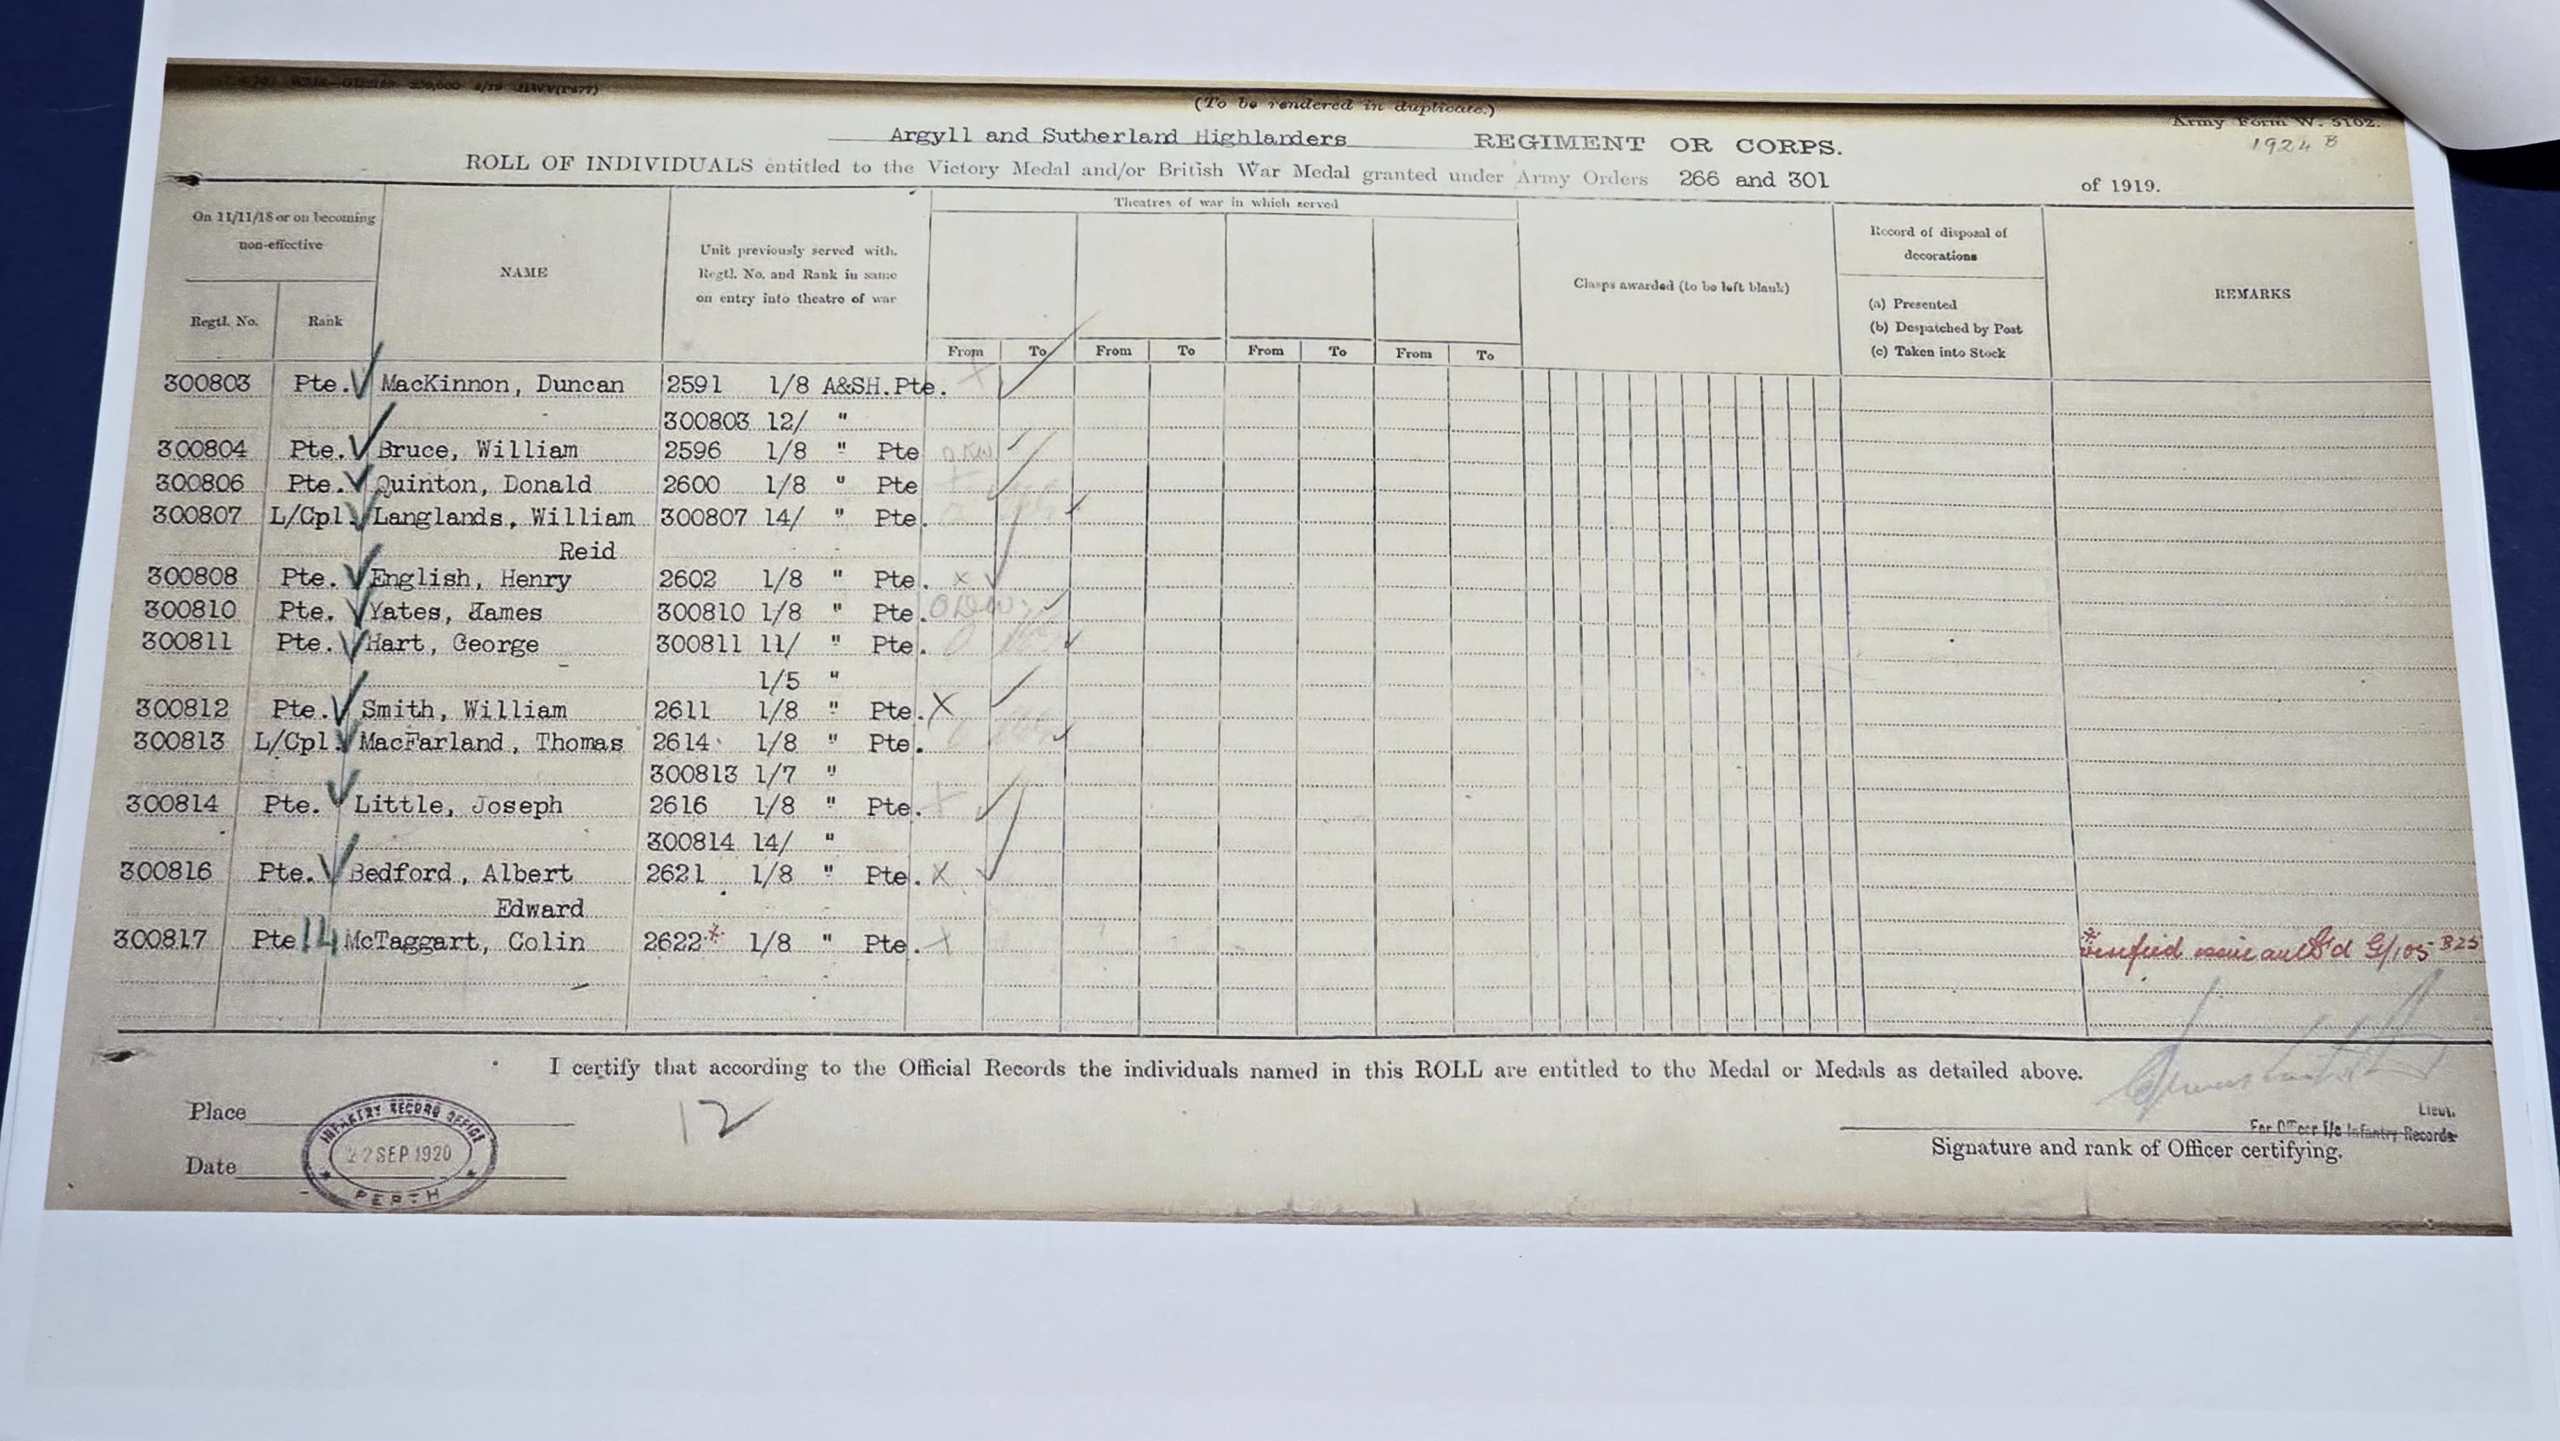 (To be rendered in duplicate.)
Army Form W. 5102.
Argyll and Sutherland Highlanders REGIMENT OR CORPS.
1924 B
ROLL OF INDIVIDUALS entitled to the Victory Medal and/or British War Medal granted under Army Orders 266 and 301 of 1919.
On 11/11/18 or on becoming
non-effective
Regtl. No. Rank
NAME
Unit previously served with.
Regtl. No. and Rank in same
on entry into theatre of war
Theatres of war in which served
From To From To From To From To
Clasps awarded (to be left blank)
Record of disposal of
decorations
(a) Presented
(b) Despatched by Post
(c) Taken into Stock
REMARKS
300803 Pte. MacKinnon, Duncan 2591 1/8 A&SH. Pte.
300803 12/ "
300804 Pte. Bruce, William 2596 1/8 " Pte
300806 Pte. Quinton, Donald 2600 1/8 " Pte
300807 L/Cpl. Langlands, William 300807 14/ " Pte.
Reid
300808 Pte. English, Henry 2602 1/8 " Pte. x
300810 Pte. Yates, James 300810 1/8 " Pte.
300811 Pte. Hart, George 300811 11/ " Pte.
1/5 "
300812 Pte. Smith, William 2611 1/8 " Pte. X
300813 L/Cpl. MacFarland, Thomas 2614 1/8 " Pte.
300813 1/7 "
300814 Pte. Little, Joseph 2616 1/8 " Pte.
300814 14/ "
300816 Pte. Bedford, Albert 2621 1/8 " Pte. X
Edward
300817 Pte 14 McTaggart, Colin 2622* 1/8 " Pte.
* verified issue auth'd G/105 B25
I certify that according to the Official Records the individuals named in this ROLL are entitled to the Medal or Medals as detailed above.
Place
Date
INFANTRY RECORD OFFICE
22 SEP 1920
PERTH
12
Lieut.
For Officer I/c Infantry Records
Signature and rank of Officer certifying.